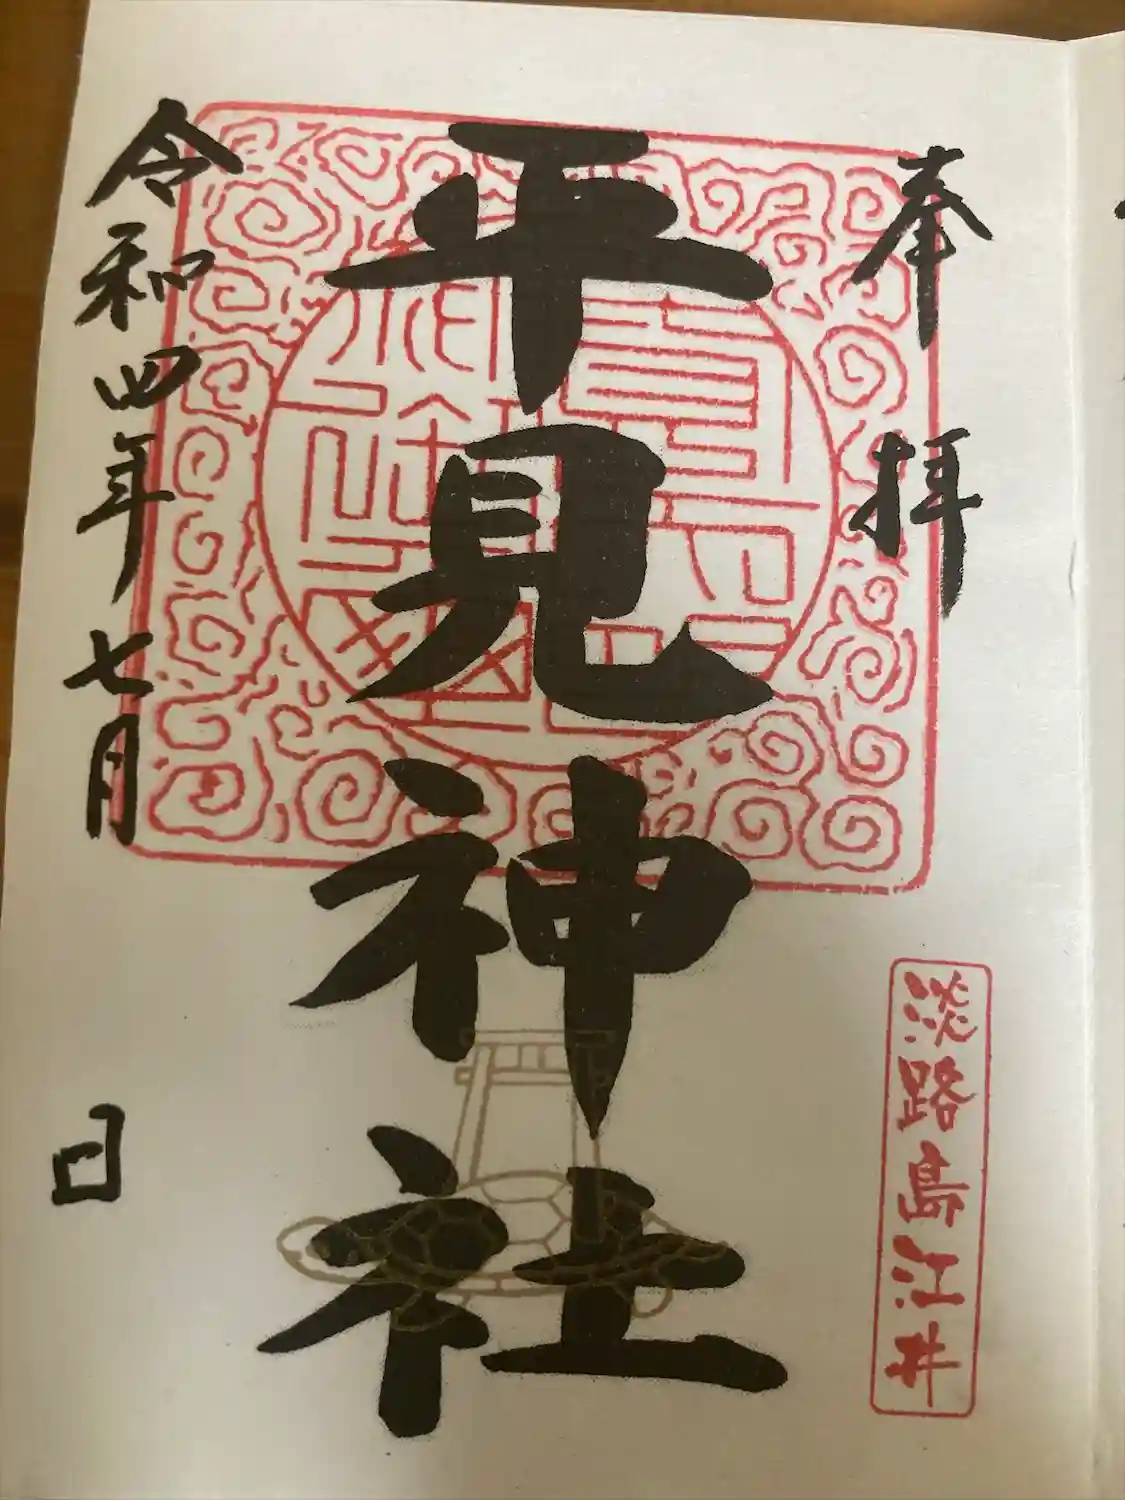 奉拝
淡路島江井
平見神社
令和四年七月 日